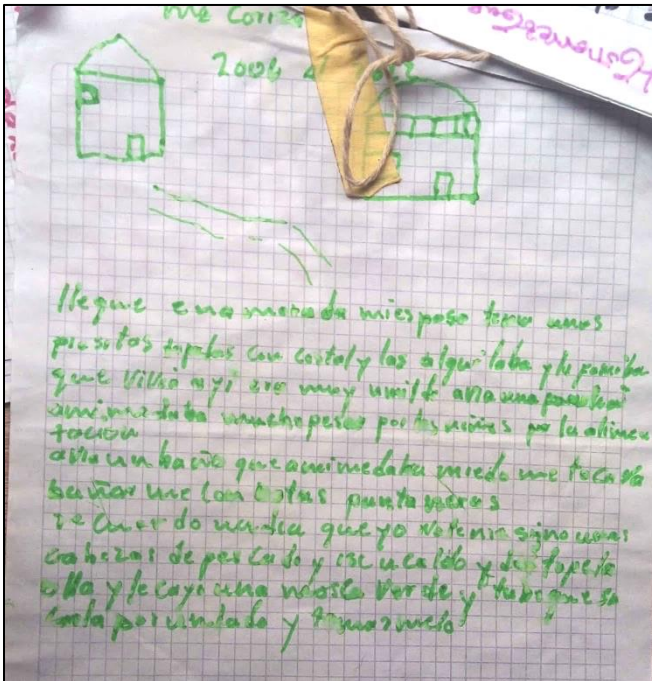 me Coriza
2004
llegue enamorada mi esposo tenia unos
piesitos tapetas con costal y las alquilaba y la familia
que vivia ayi era muy umilde avia una
amimedaba mucho pesar por los niños por la alimen
tacion
avia un baño que amimedaba miedo me tocava
bañarme con botas pantaneras
recuerdo un dia que yo no tenia sino unas
cabezas de pescado y ise un caldo y destape la
olla y le cayo una mosca verde y tube que sa
carla por un lado y tomarmelo